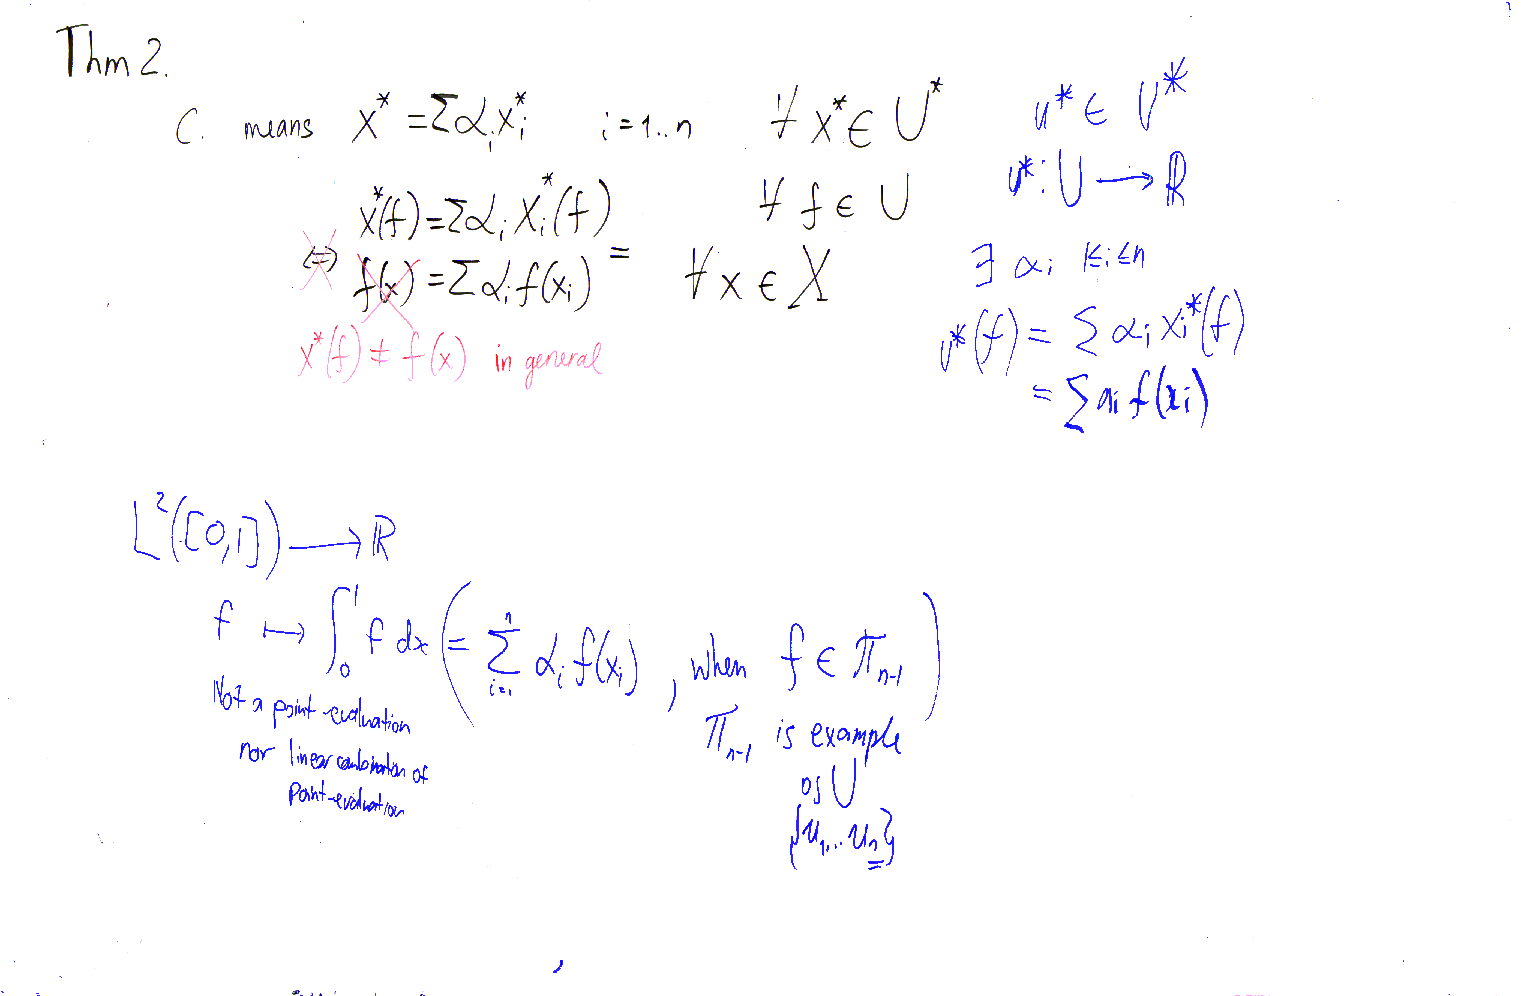 Thm 2.
C. means x* = Σαᵢxᵢ* i=1..n ∀ x* ∈ U*
x*(f) = Σαᵢ xᵢ*(f) ∀ f ∈ U
⇔ f(x) = Σαᵢ f(xᵢ) = ∀ x ∈ X
x*(f) ≠ f(x) in general
u* ∈ U*
u*: U → ℝ
∃ αᵢ 1≤i≤n
u*(f) = Σ αᵢ xᵢ*(f)
= Σ αᵢ f(xᵢ)
L²([0,1]) → ℝ
f ↦ ∫₀¹ f dx (= Σᵢ₌₁ⁿ αᵢ f(xᵢ), when f ∈ πₙ₋₁)
Not a point-evaluation
nor linear combination of
point-evaluation
πₙ₋₁ is example
of U
{u₁,..uₙ}